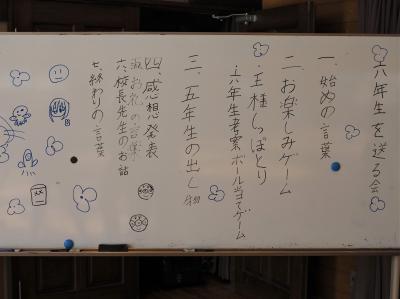 六年生を送る会
一、始めの言葉
二、お楽しみゲーム
・王種しっぽとり
・六年生考案ボール当てゲーム
三、五年生の出し物
四、感想発表
五、お礼の言葉
六、校長先生のお話
七、終わりの言葉